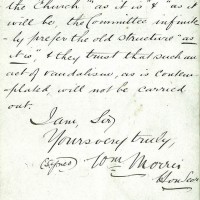 the Church "as it is" & "as it
will be, the Committee infinite-
ly prefer the old structure "as
it is", & they trust that such an
act of vandalism, as is contem-
plated, will not be carried
out.
I am, Sir,
Yours very truly,
(signed) Wm Morris
Hon Sec